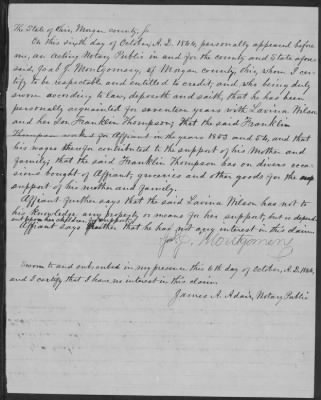 The State of Ohio, Morgan county, ss
On this sixth day of October, A.D. 1864, personally appeared before
me, an Acting Notary Public in and for the county and State afore-
said, Joal J. Montgomery, of Morgan county, Ohio, whom I cer-
tify to be respectable and entitled to credit, and who being duly
sworn according to law, deposeth and saith, that he has been
personally acquainted for seventeen years with Lavina Wilson
and her son Franklin Thompson; that the said Franklin
Thompson worked for Affiant in the years 1853 and 54, and that
his wages then contributed to the support of his Mother and
family; that the said Franklin Thompson has on divers occa-
sions bought of Affiant, groceries and other goods for the
support of his mother and family.
Affiant further says that the said Lavina Wilson has not to
his knowledge any property or means for her support, but is depend-
ent upon her children for support;
Affiant says further that he has not any interest in this claim.
J. J. Montgomery
Sworn to and subscribed in my presence this 6th day of October, A.D. 1864,
and I certify that I have no interest in this claim.
James A. Adair, Notary Public